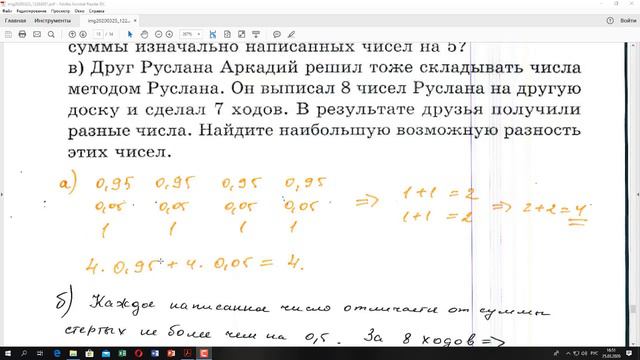 img20200325_12268207.pdf - Adobe Acrobat Reader DC
Файл Редактирование Просмотр Окно Справка
Главная Инструменты
Войти
суммы изначально написанных чисел на 5?
в) Друг Руслана Аркадий решил тоже складывать числа
методом Руслана. Он выписал 8 чисел Руслана на другую
доску и сделал 7 ходов. В результате друзья получили
разные числа. Найдите наибольшую возможную разность
этих чисел.
а) 0,95 0,95 0,95 0,95
0,05 0,05 0,05 0,05
1 1 1 1
=> 1+1=2
1+1=2
=> 2+2=4
4·0,95+4·0,05=4.
б) Каждое написанное число отличается от суммы
стертых не более чем на 0,5. За 8 ходов =>
РУС
16:51
25.03.2020